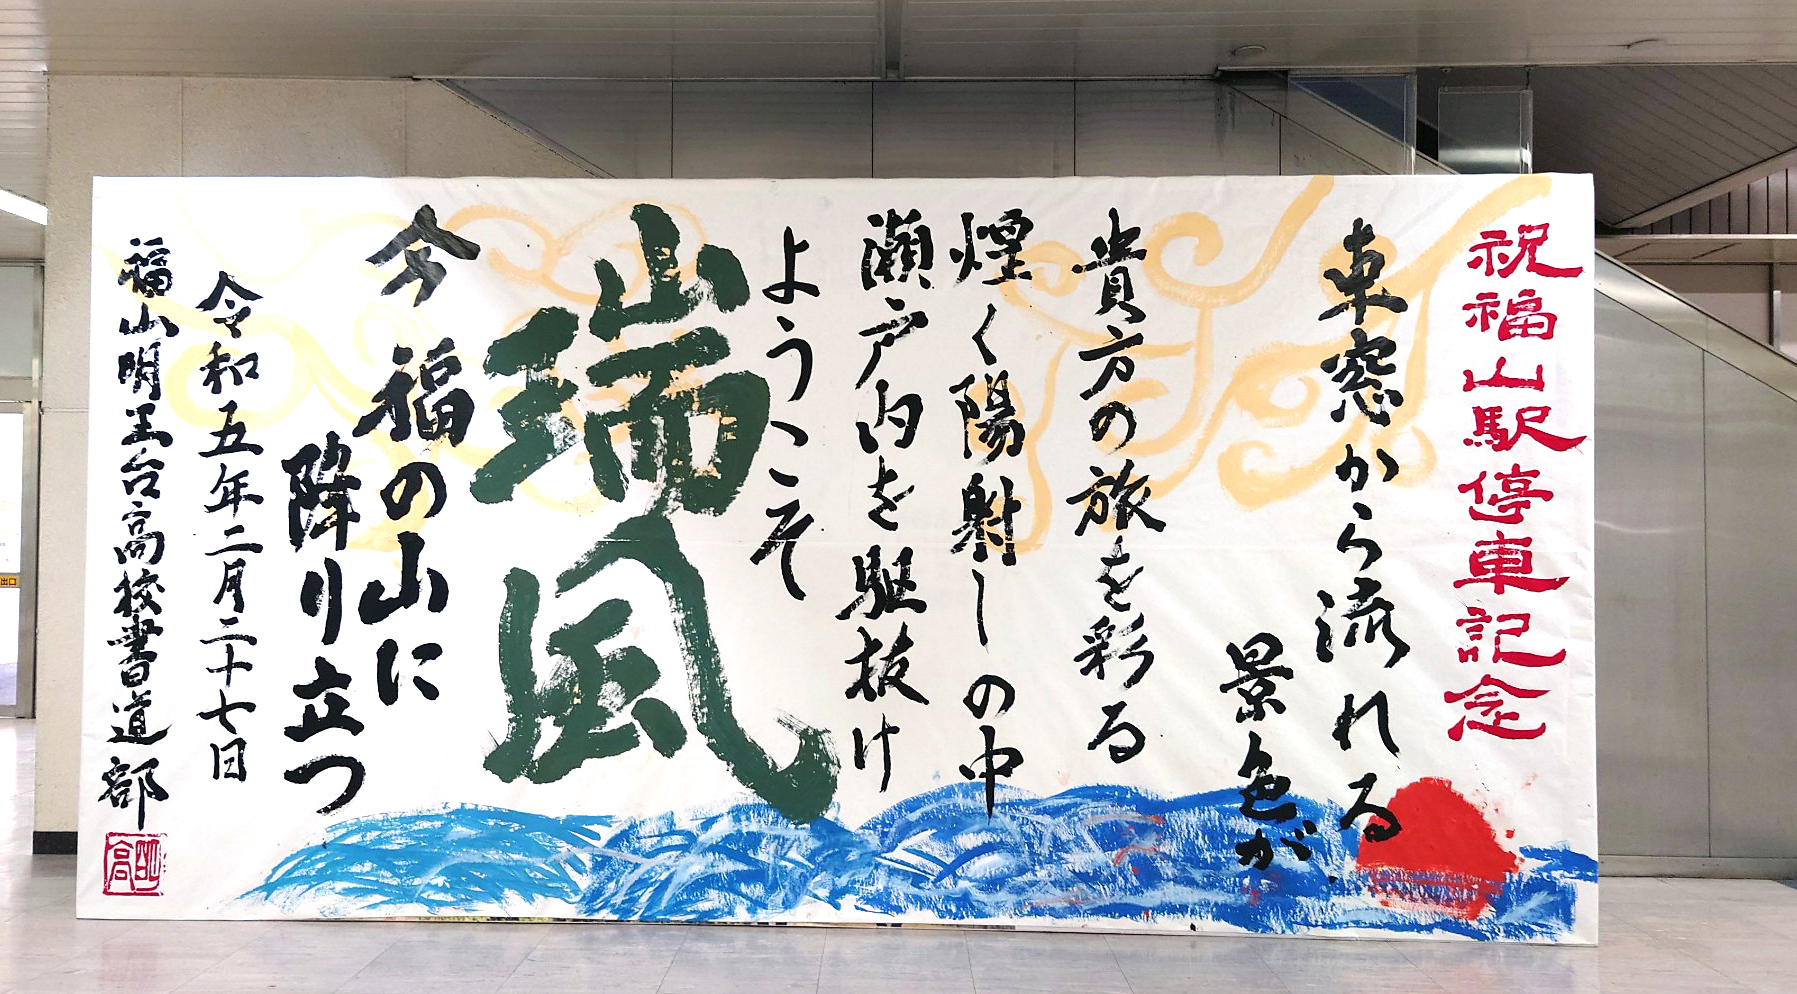 祝福山駅停車記念
車窓から流れる
景色が
貴方の旅を彩る
煌く陽射しの中
瀬戸内を駆抜け
ようこそ
瑞風
今福の山に
降り立つ
令和五年二月二十七日
福山明王台高校書道部
明高
出口